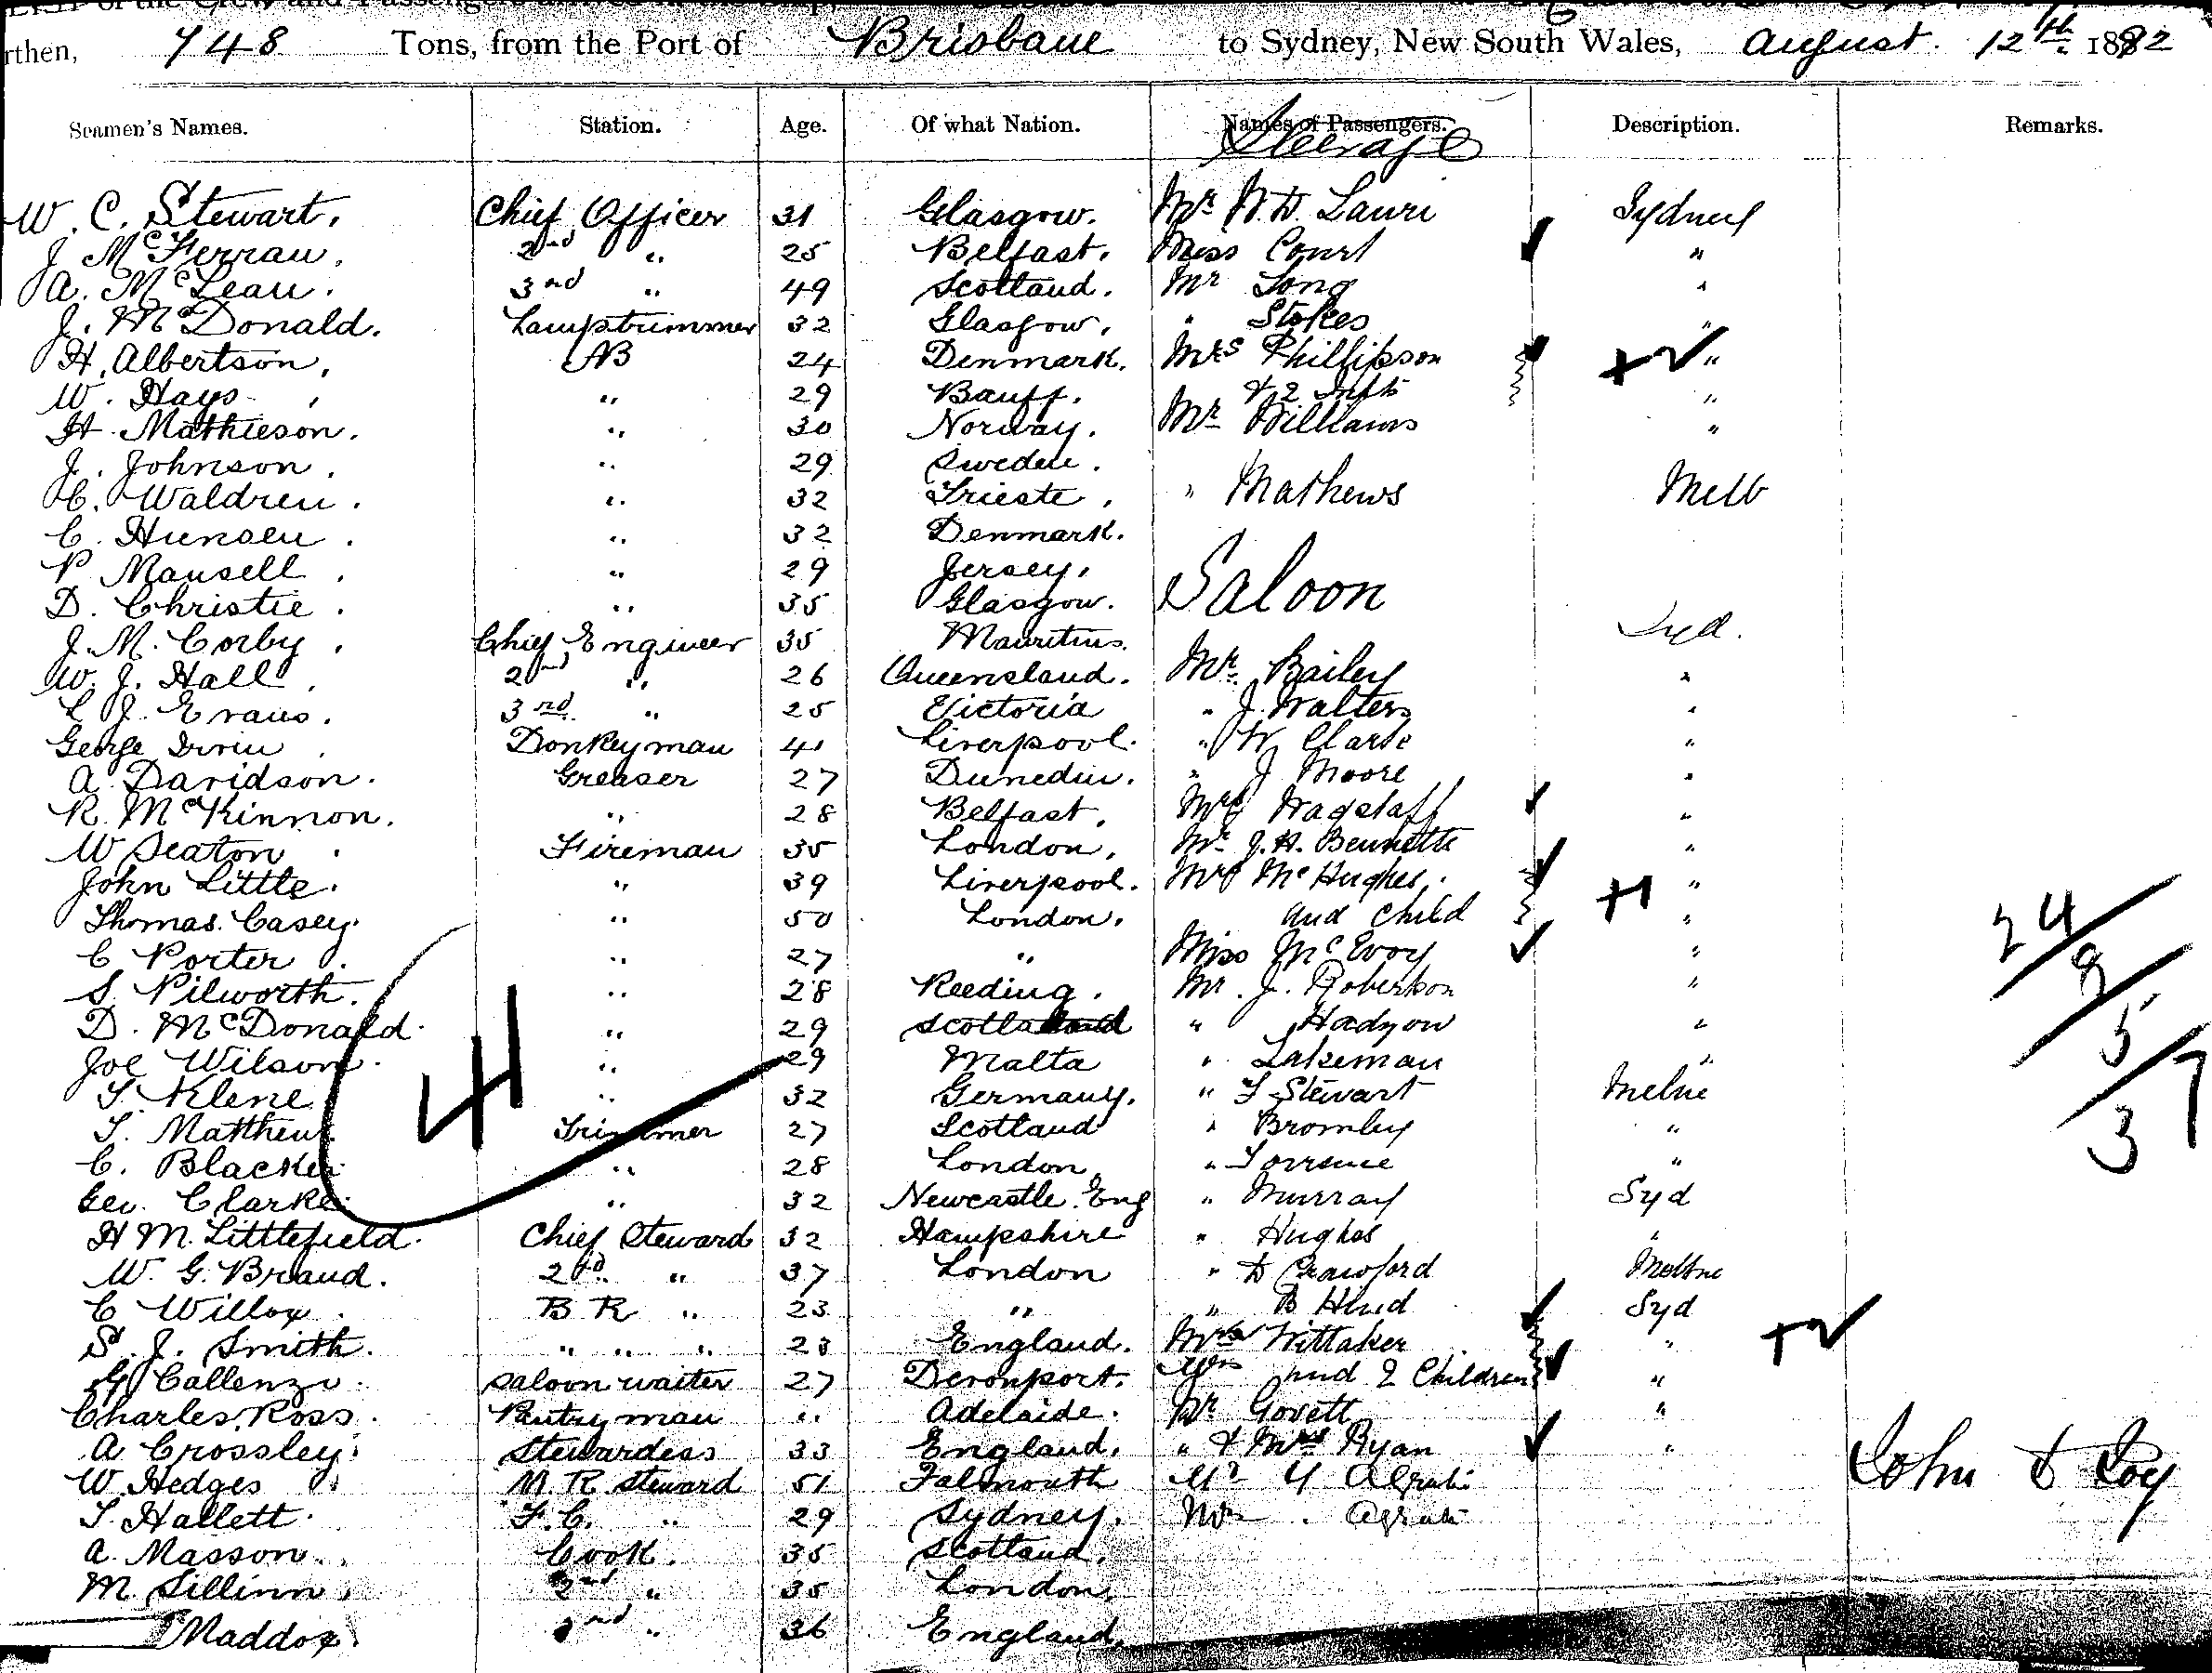 LIST of the Crew and Passengers
rthen, 748 Tons, from the Port of Brisbane to Sydney, New South Wales, August 12th 1892
Seamen's Names. Station. Age. Of what Nation. Names of Passengers. Description. Remarks.
Steerage
W. C. Stewart. Chief Officer 31 Glasgow. Mr Lauri Sydney
J McFerran. 2nd " 25 Belfast. Miss Court "
A. McLean. 3rd " 49 Scotland. Mr Long "
J. McDonald. Lamptrimmer 32 Glasgow. " Stokes "
H. Albertson. AB 24 Denmark. Mrs Phillipson +2 "
W. Hays. " 29 Banff. & 2 Infts "
H. Mathieson. " 30 Norway. Mr Williams "
J. Johnson. " 29 Sweden.
C. Waldren. " 32 Trieste. " Mathews Melb
C. Hunsen. " 32 Denmark.
P Mansell. " 29 Jersey. Saloon
D. Christie. " 35 Glasgow.
J. M. Corby. Chief Engineer 35 Mauritius. Syd.
W. J. Hall. 2nd " 26 Queensland. Mr Bailey "
L J. Evans. 3rd " 25 Victoria " J. Walters "
George Irvin. Donkeyman 41 Liverpool. " W Clarke "
A Davidson. Greaser 27 Dunedin. " J Moore "
R. McKinnon. " 28 Belfast. Mrs Wagstaff "
W Seaton. Fireman 35 London. Mr J. H. Bennette "
John Little. " 39 Liverpool. Mrs McHughes. +1 "
Thomas Casey. " 50 London. and Child "
C Porter. " 27 " Miss McEvoy "
S. Pilworth. " 28 Reeding. Mr. J. Robertson "
D. McDonald. " 29 Scotland " Hadyow "
Joe Wilson. " 29 Malta " Lakeman "
T. Klene " 32 Germany. " F Stewart Melbne
T. Matthews. Trimmer 27 Scotland " Bromley "
C. Blacker. " 28 London " Torrence "
Geo. Clarke. " 32 Newcastle. Eng " Murray Syd
H M. Littlefield. Chief Steward 32 Hampshire " Hughes "
W. G. Braud. 2nd " 37 London " D Crawford Melbne
C Willox. B R " 23 " " B Hind Syd
S. J. Smith. " " " 23 England. Mrs Wittaker " +2
G Callenzo. Saloon waiter 27 Devonport. and 2 Children "
Charles Ross. Pantryman " Adelaide. Mr Govett "
A Crossley. Stewardess 33 England. " & Mrs Ryan "
W. Hedges M. R. Steward 51 Falmouth Agrati
T. Hallett. F. C. " 29 Sydney. Agrati
A. Masson. Cook. 35 Scotland.
M. Sillinn. 2nd " 35 London.
Maddox. 3rd " 36 England.
H
24
9
5
3/7
John D Loy